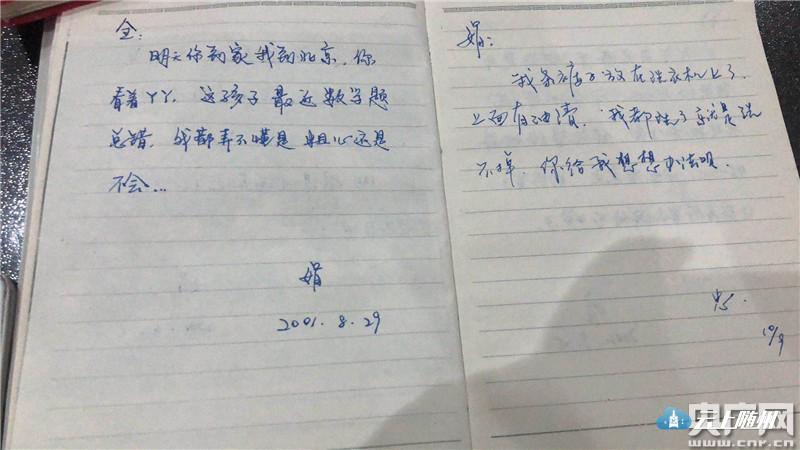 全：
明天你到家我到北京，你
看着丫丫，这孩子最近数学题
总错，我都弄不懂是粗心还是
不会...
娟
2001.8.29
娟：
我条裤子放在洗衣机上了，
上面有油渍，我都洗了就是洗
不掉，你给我想想办法呗.
10/9
云上随州
央广网
www.cnr.cn